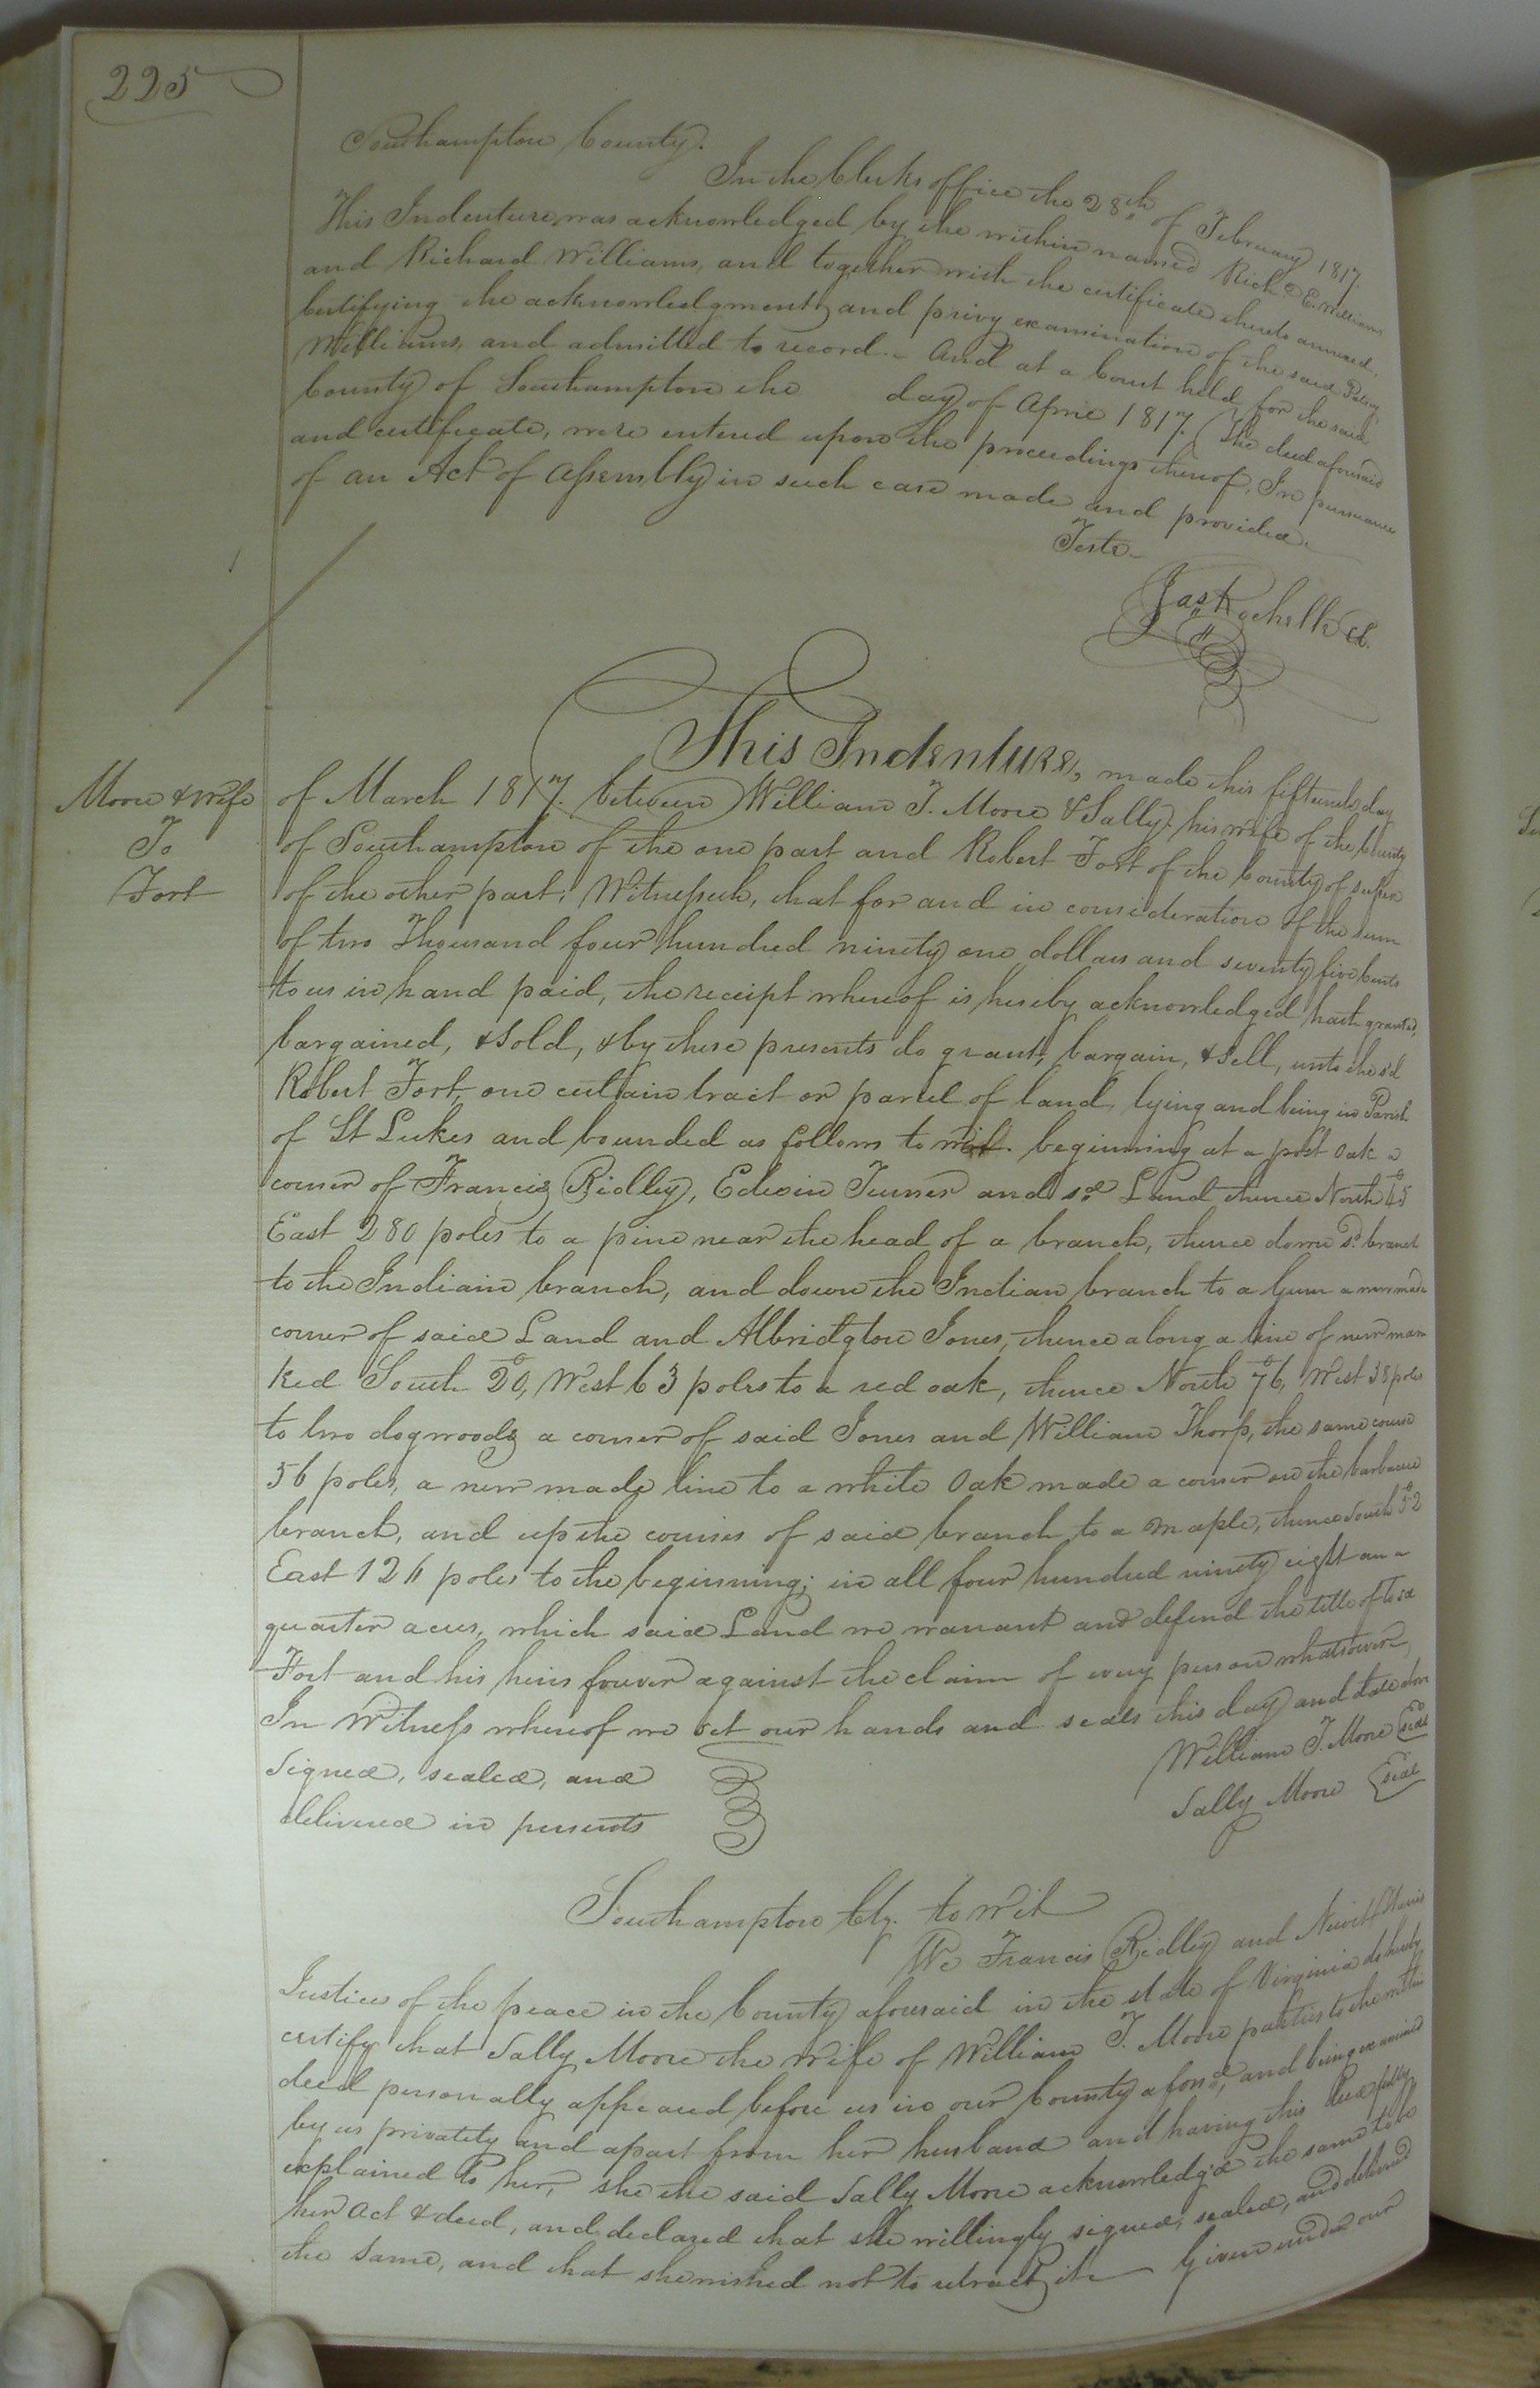 225
Southampton County.
In the Clerks office the 28th of February 1817.
This Indenture was acknowledged by the within named Richd E. Williams
and Richard Williams, and together with the certificate thereto annexed,
Certifying the acknowledgment and privy examination of the said Patsey
Williams, and admitted to record. And at a Court held for the said
County of Southampton the day of April 1817. The deed aforesaid
and certificate, were entered upon the proceedings thereof, In pursuance
of an Act of Assembly in such case made and provided.
Teste
Jas Rochelle Cl.
Moore & Wife
To
Fort
This Indenture, made this fifteenth day
of March 1817. between William T. Moore & Sally his wife of the County
of Southampton of the one part and Robert Fort of the County of Sussex
of the other part, Witnesseth, that for and in consideration of the sum
of two Thousand four hundred ninety one dollars and seventy five Cents
to us in hand paid, the receipt whereof is hereby acknowledged hath granted,
bargained, & sold, & by these presents do grant, bargain, & sell, unto the sd
Robert Fort, one certain tract or parcel of land, lying and being in Parish
of St Lukes and bounded as follows to wit. beginning at a post Oak a
corner of Francis Ridley, Edwin Turner and sd Land thence North 45°
East 280 poles to a pine near the head of a branch, thence down sd branch
to the Indian branch, and down the Indian branch to a Gum a new made
corner of said Land and Albridgton Jones, thence along a line of new mar
ked South 20°, West 63 poles to a red oak, thence North 76°, West 38 poles
to two dogwoods a corner of said Jones and William Thorp, the same course
56 poles, a new made line to a white Oak made a corner on the barbacue
branch, and up the courses of said branch to a maple, thence South 52°
East 126 poles to the beginning; in all four hundred ninety eight an a
quarter acres, which said Land we warrant and defend the title of to sd
Fort and his heirs forever against the claim of every person whatsoever
In Witness whereof we set our hands and seals this day and date above
Signed, sealed, and
delivered in presents
William T. Moore Seal
Sally Moore Seal
Southampton Cty. to wit
We Francis Ridley and Newit
Justices of the peace in the County aforesaid in the state of Virginia do hereby
certify that Sally Moore the wife of William T. Moore parties to the within
deed personally appeared before us in our County aforsd, and being examined
by us privately and apart from her husband and having this Deed fully
explained to her, she the said Sally Moore acknowledg'd the same to be
her act & deed, and declared that she willingly signed, sealed, and delivered
the same, and that she wished not to retract it Given under our